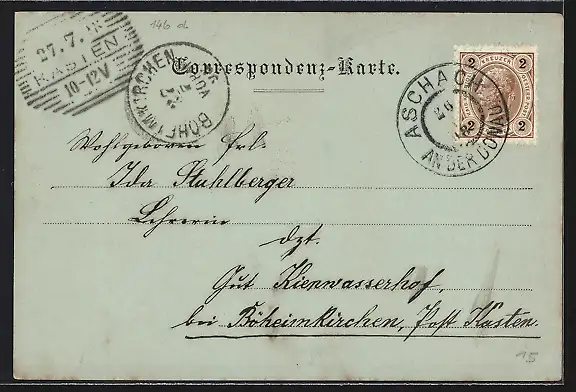 146 d
27.7.98
KASTEN
10-12V
BÖHEIMKIRCHEN
Correspondenz-Karte.
2 KREUZER 2
2 2
ASCHACH
AN DER DONAU
Wohlgeboren Frl.
Ida Stuhlberger
Lehrerin
dzt.
Gut Kienwasserhof,
bei Böheimkirchen, Post Kasten.
15